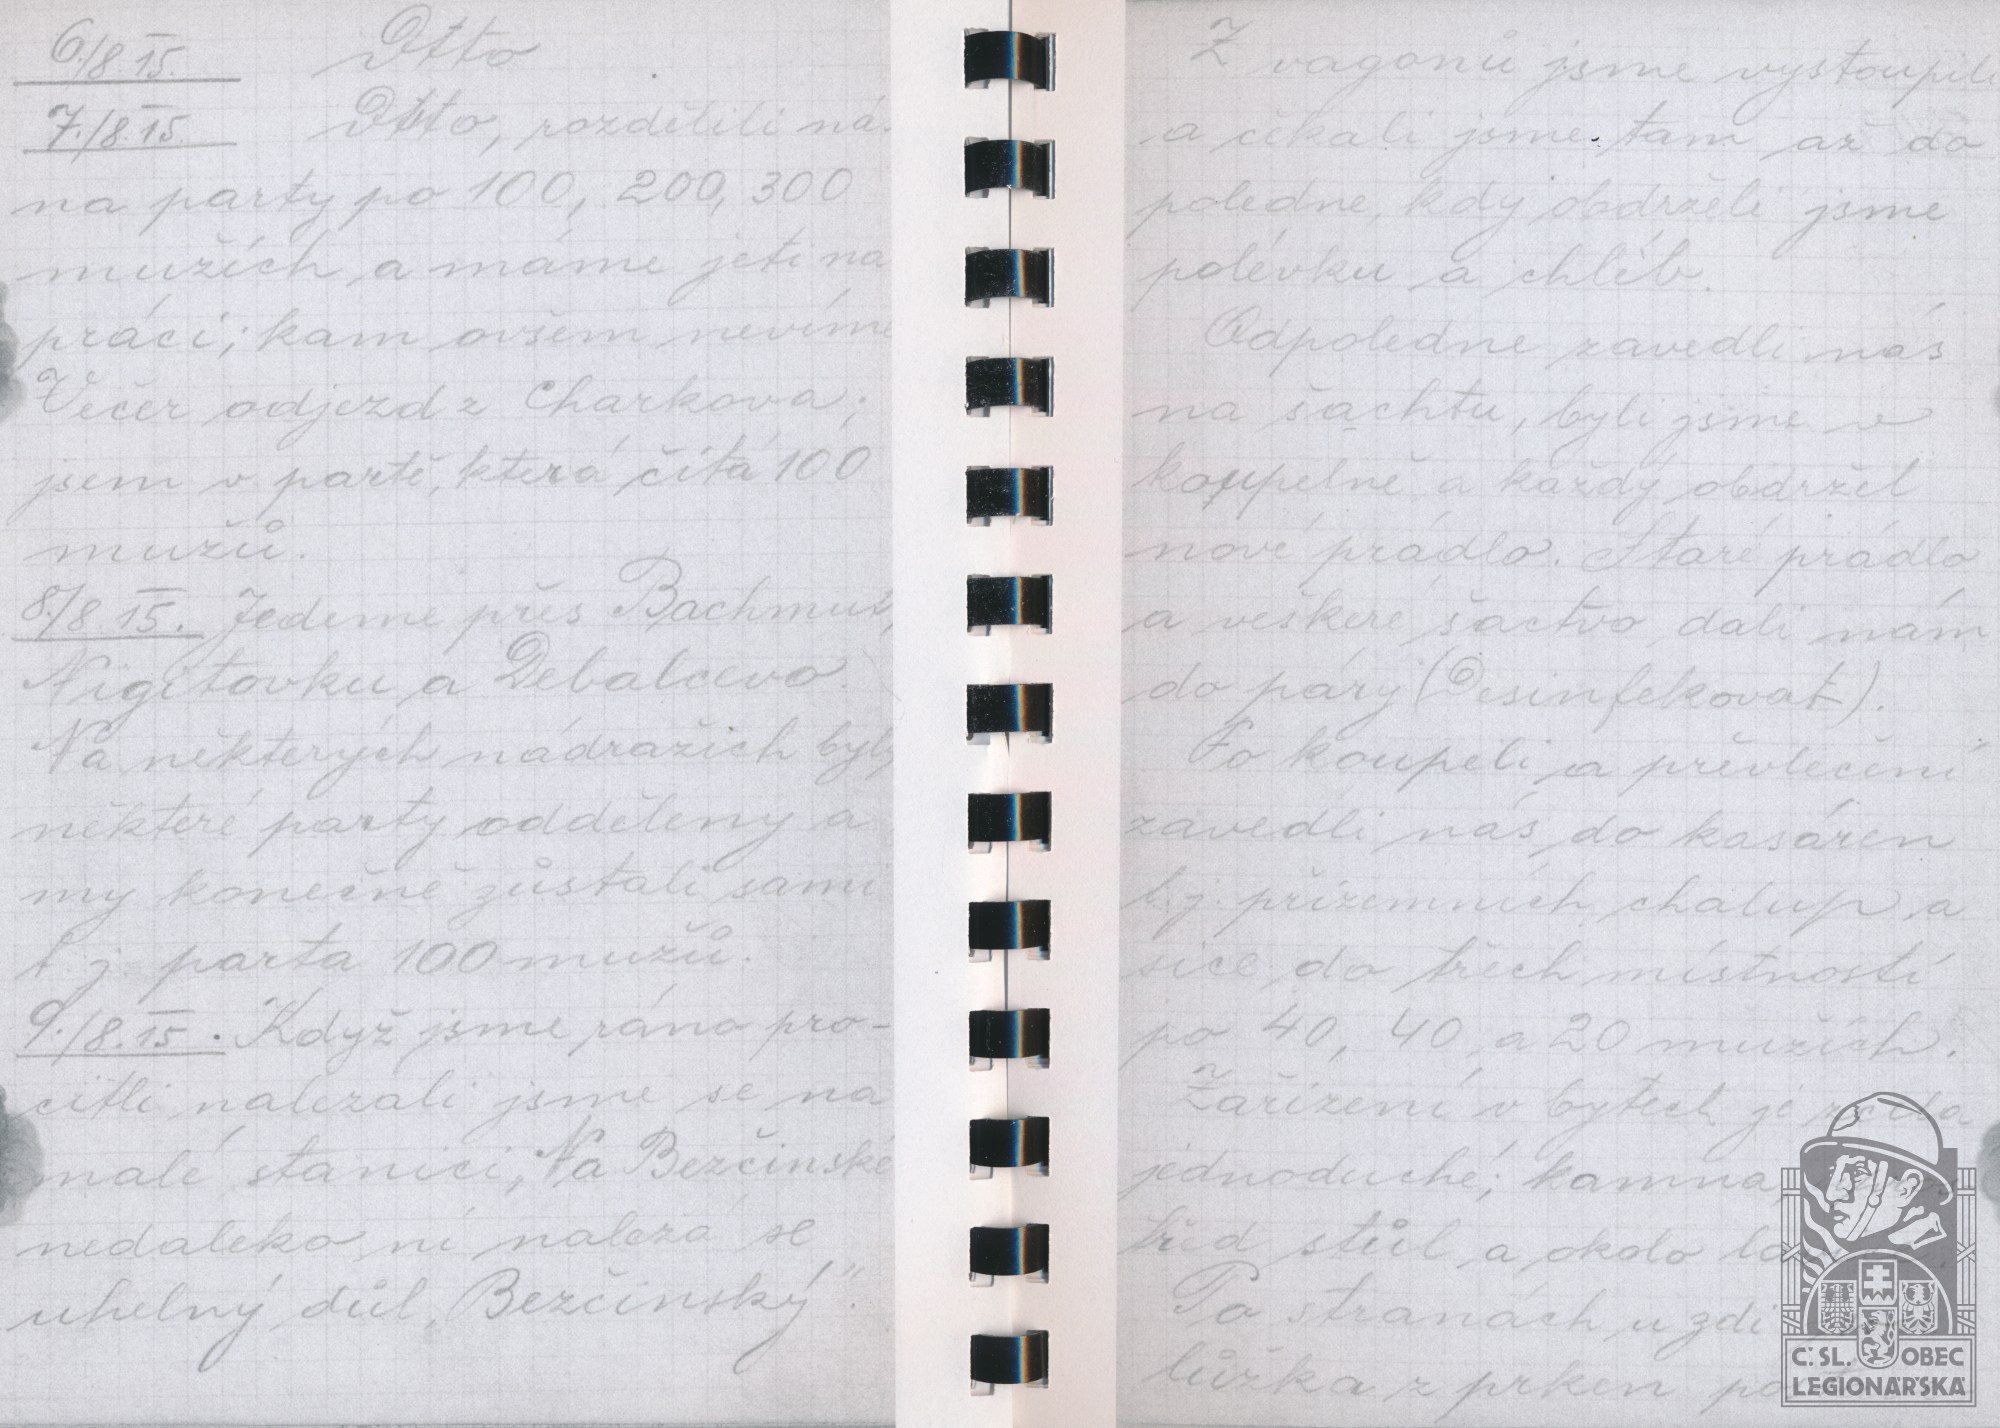 6./8. 15. Otto
7./8. 15. Otto, rozdělili ná-
na party po 100, 200, 300
mužích a máme jeti na
práci; kam ovšem nevíme
Večer odjezd z Charkova;
jsem v partě, která čítá 100
mužů.
8./8. 15. Jedeme přes Bachmut,
Nigitovku a Debalcevo.
Na některých nádražích byly
některé party odděleny a
my konečně zůstali sami
t. j. parta 100 mužů.
9./8. 15. Když jsme ráno pro-
citli nalezali jsme se na
malé stanici, Na Bezčinské
nedaleko ní nalezá se
uhelný důl „Bezčinský".
Z vagonů jsme vystoupili
a čekali jsme tam až do
poledne, kdy obdrželi jsme
polévku a chléb.
Odpoledne zavedli nás
na šachtu, byli jsme v
koupelně a každý obdržel
nové prádlo. Staré prádlo
a veškeré šactvo dali nám
do páry (Desinfekovat).
Po koupeli a převlečení
zavedli nás do kasáren
t. j. přízemních chalup a
sice do třech místností
po 40, 40 a 20 mužích.
Zařízení v bytech je
jednoduché; kamna,
třed stůl a okolo
Po stranách u zdi
lůžka z prken
Č. SL. OBEC
LEGIONÁŘSKÁ